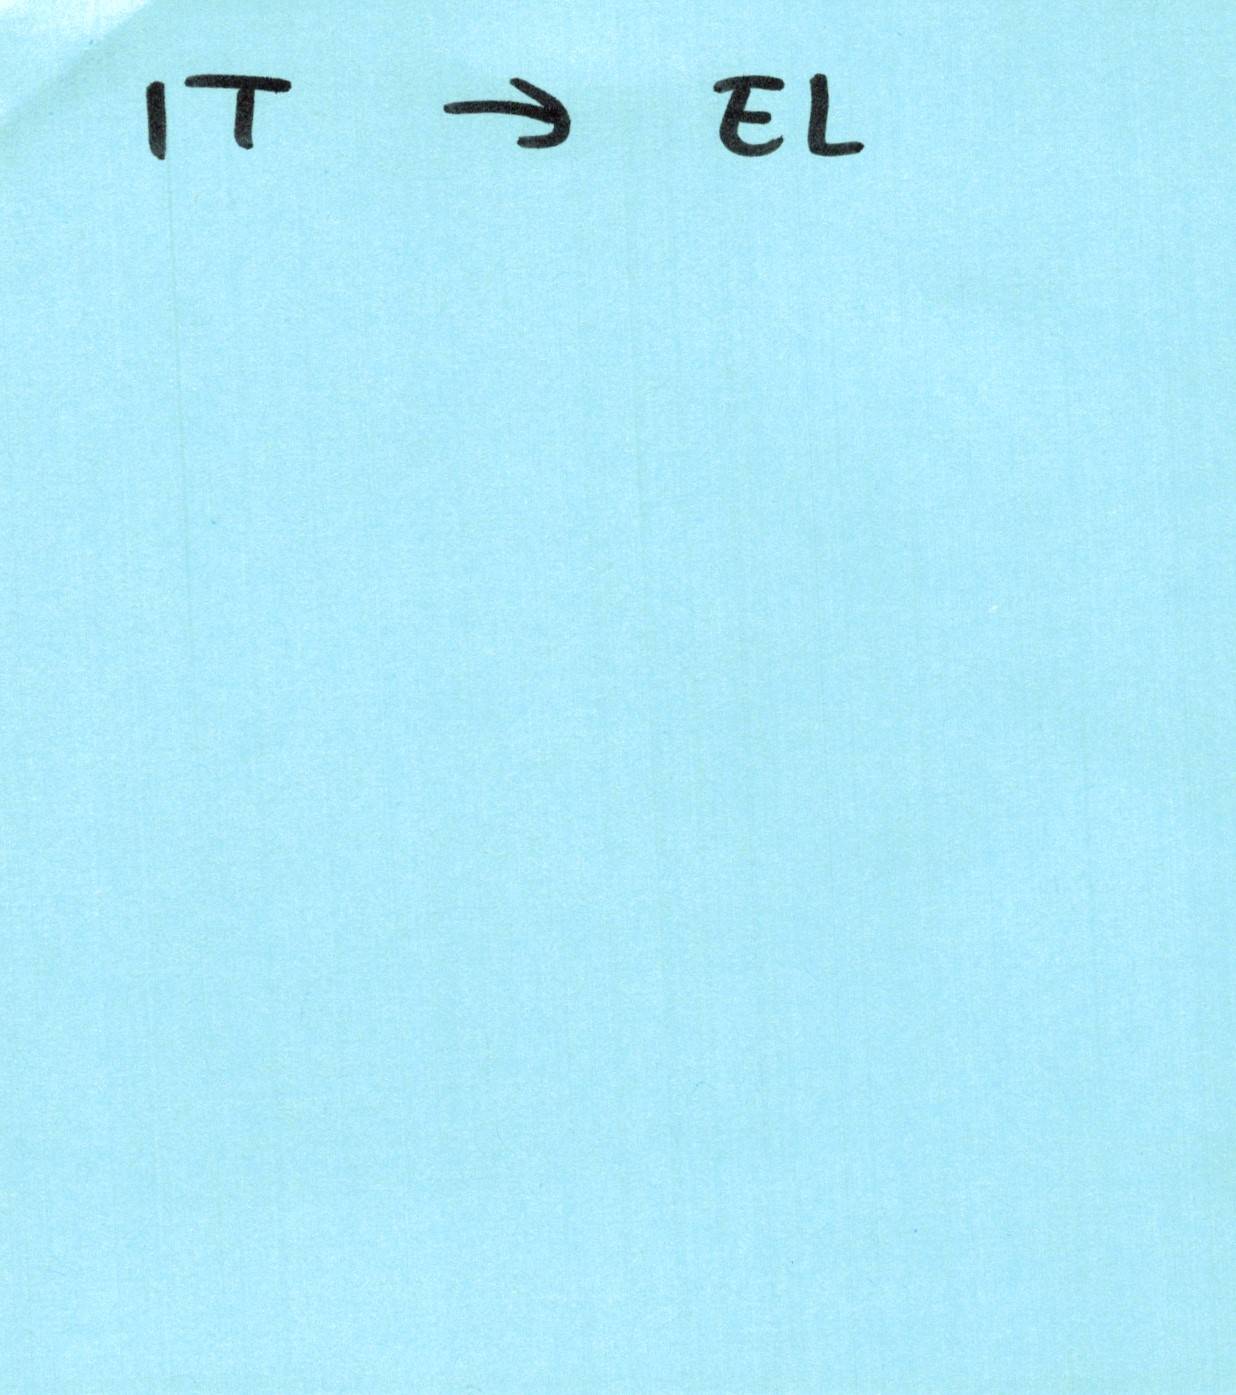 IT → EL